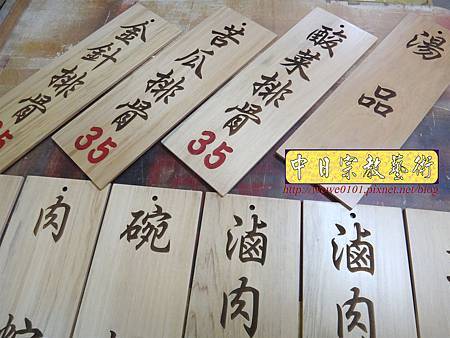 金針排骨
35
苦瓜排骨
35
酸菜排骨
35
湯品
中日宗教藝術
肉
碗
滷肉
滷肉